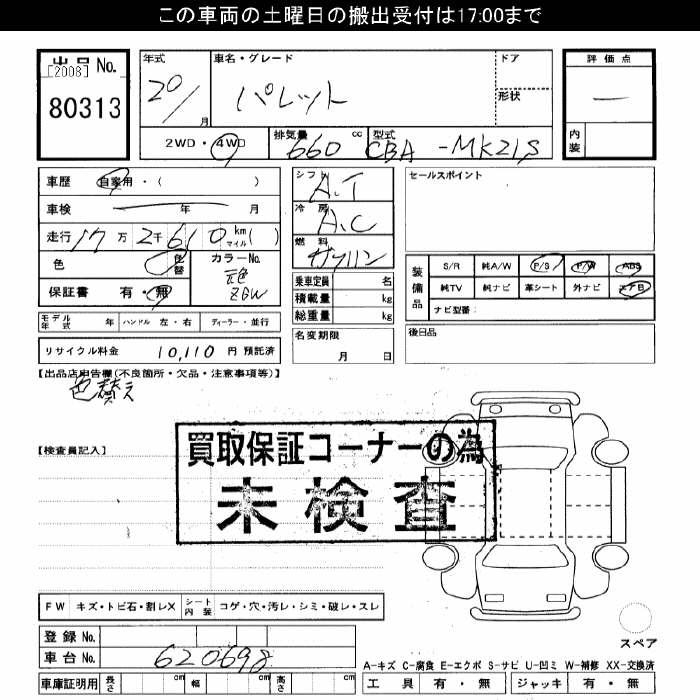 この車両の土曜日の搬出受付は17:00まで
出品 No.
[2008]
80313
年式 車名・グレード ドア
20/ 月 パレット 形状
評価点
一
内装
2WD・4WD 排気量 660 cc 型式 CBA-MK21S
車歴 自家用・( )
車検 年 月
走行 17万2千610 km マイル( )
色 色替 カラーNo.
元色 ZGW
保証書 有・無
シフト A.T
冷房 A.C
燃料 ガソリン
乗車定員 名
積載量 kg
総重量 kg
セールスポイント
装備品 S/R 純A/W P/S P/W ABS
純TV 純ナビ 革シート 外ナビ エアB
ナビ型番:
モデル年式 年 ハンドル 左・右 ディーラー・並行
名変期限 月 日
後日品
リサイクル料金 10,110 円 預託済
【出品店申告欄(不良箇所・欠品・注意事項等)】
色替え
【検査員記入】
買取保証コーナーの為
未検査
FW キズ・トビ石・割レX シート内装 コゲ・穴・汚レ・シミ・破レ・スレ
登録 No.
車台 No. 620698
スペア
A-キズ C-腐食 E-エクボ S-サビ U-凹ミ W-補修 XX-交換済
車庫証明用 長さ cm 幅 cm 高さ cm
工具 有・無 ジャッキ 有・無